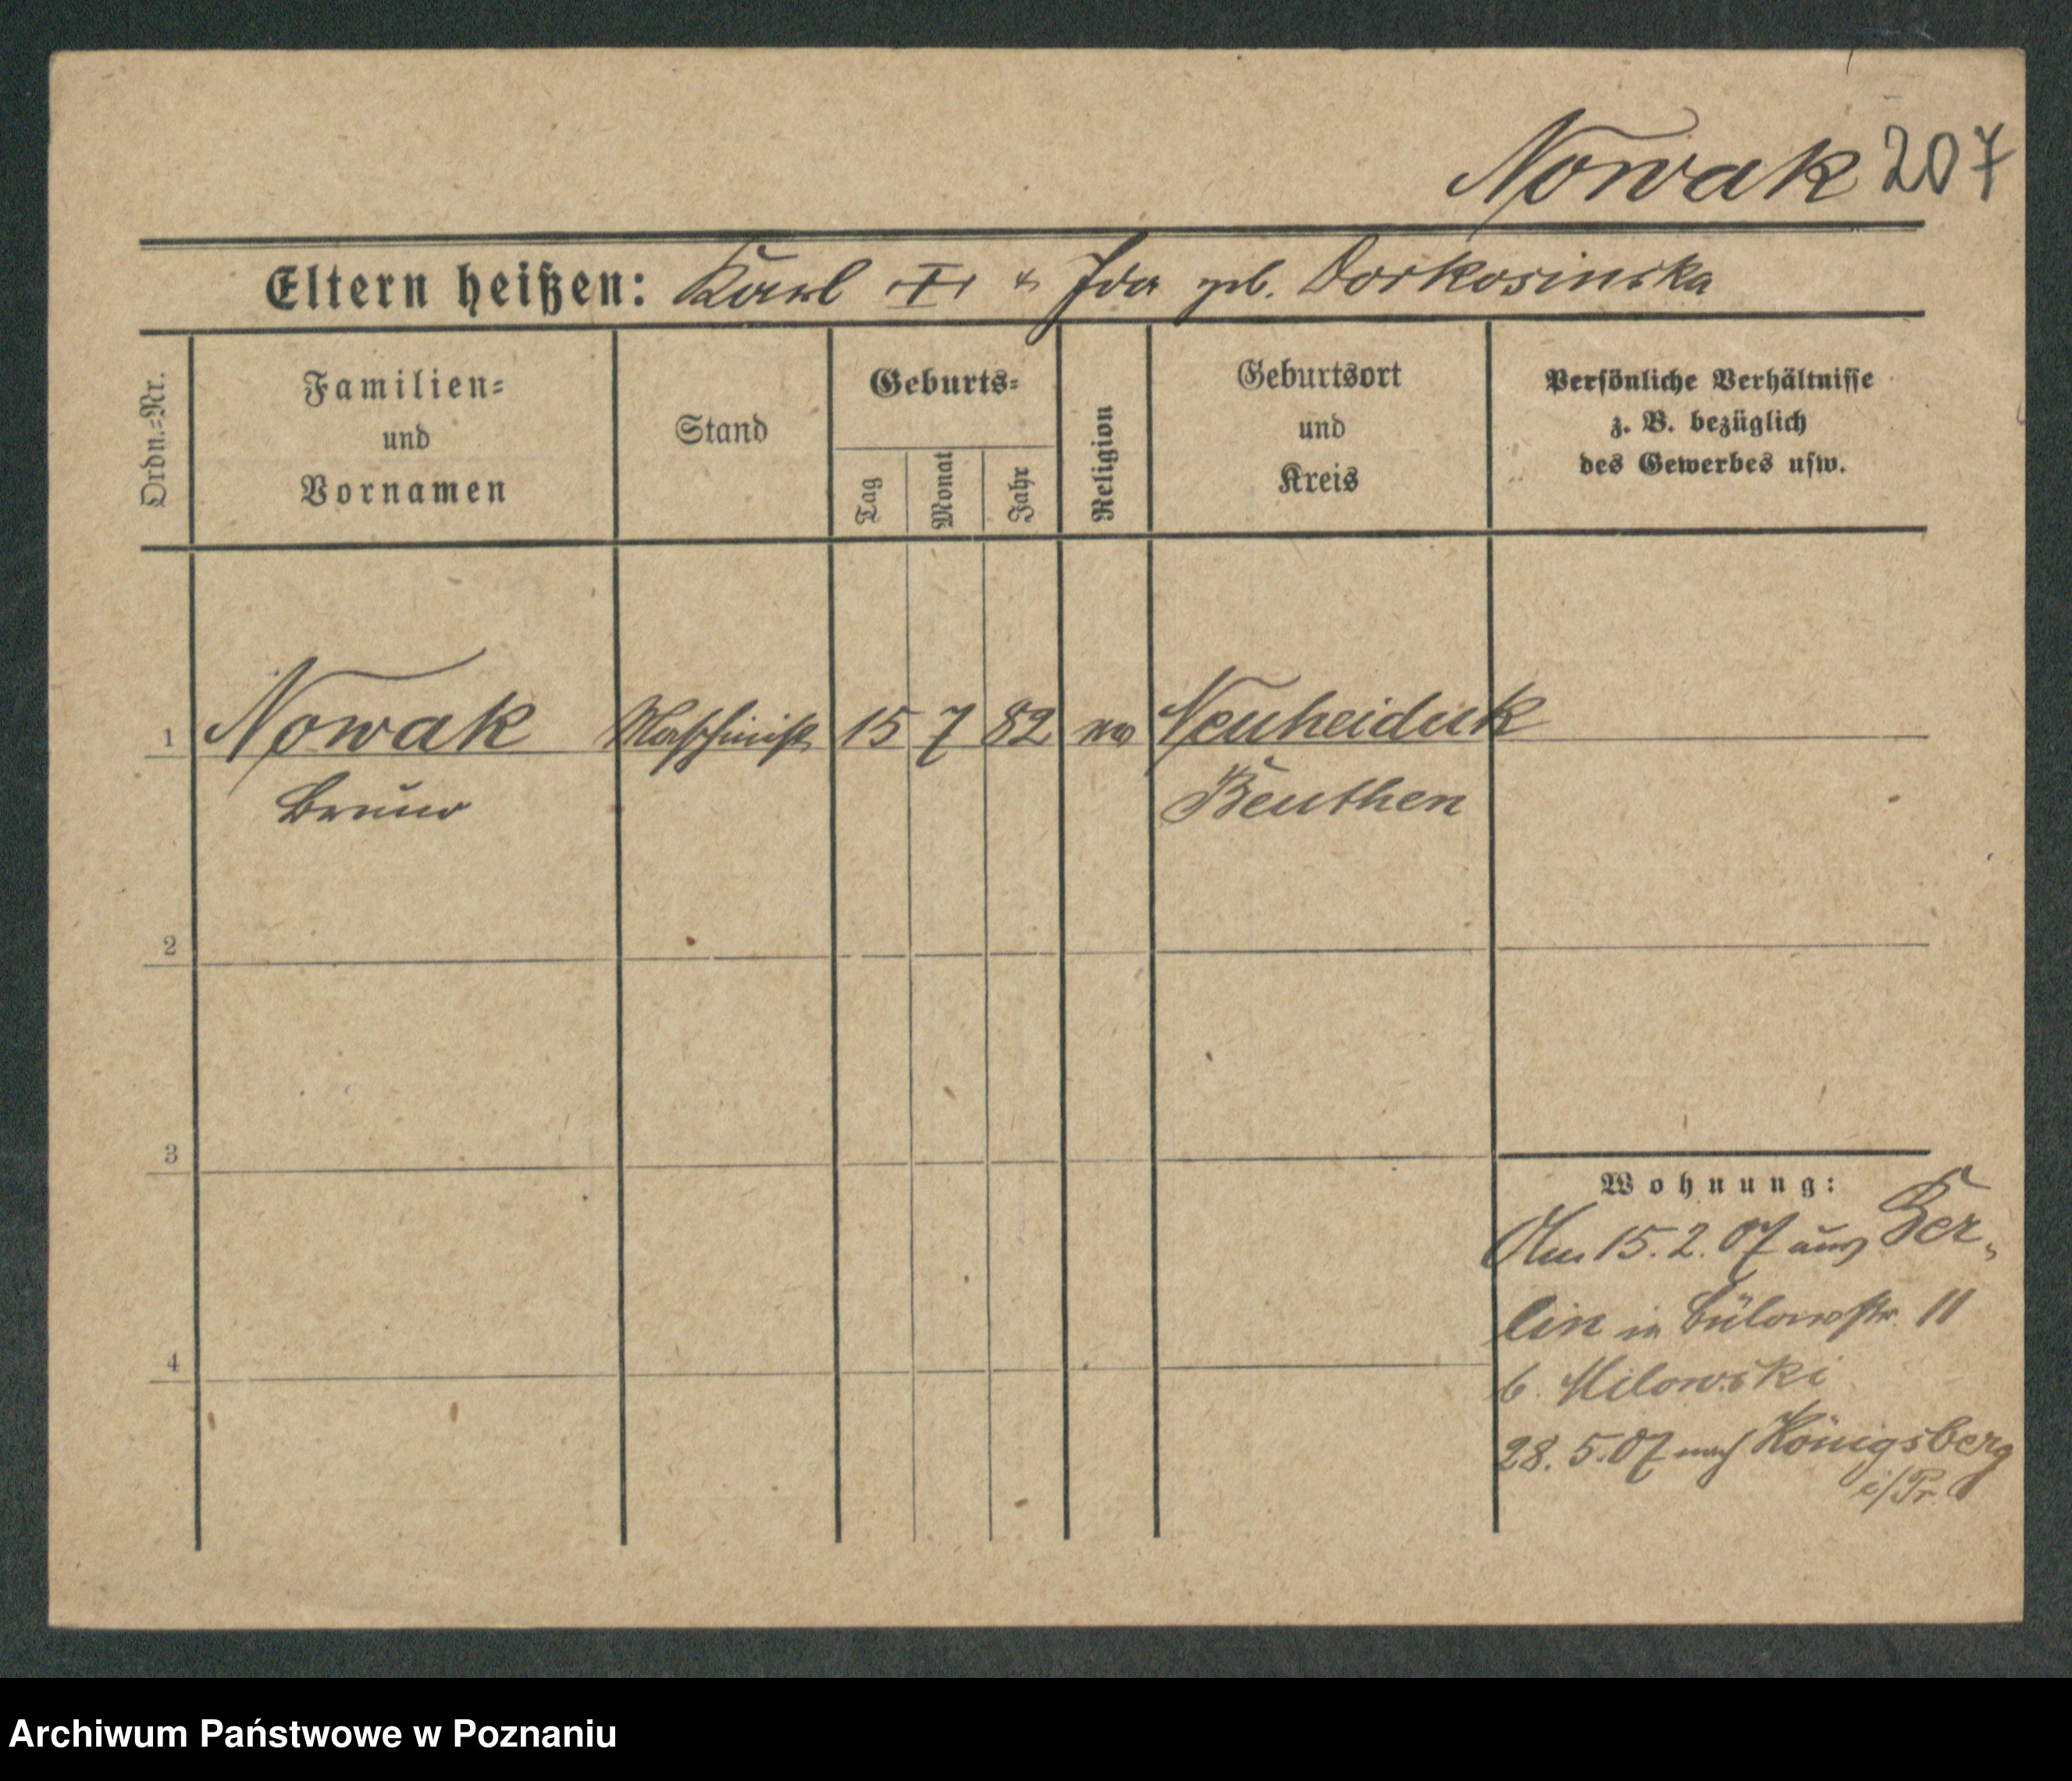 Nowak 207
Eltern heißen: Karl + & Ida geb. Dorkosinska
Ordn.-Nr.
Familien-
und
Vornamen
Stand
Geburts-
Tag
Monat
Jahr
Religion
Geburtsort
und
Kreis
Persönliche Verhältnisse
z. B. bezüglich
des Gewerbes usw.
1 Nowak Maschinist 15 7 82 Neuheiduk
Bruno Beuthen
2
3
4
Wohnung:
Am 15.2.07 aus Ber-
lin in Bülowstr. 11
b. Milowski
28.5.07 nach Königsberg
i/Pr.
Archiwum Państwowe w Poznaniu